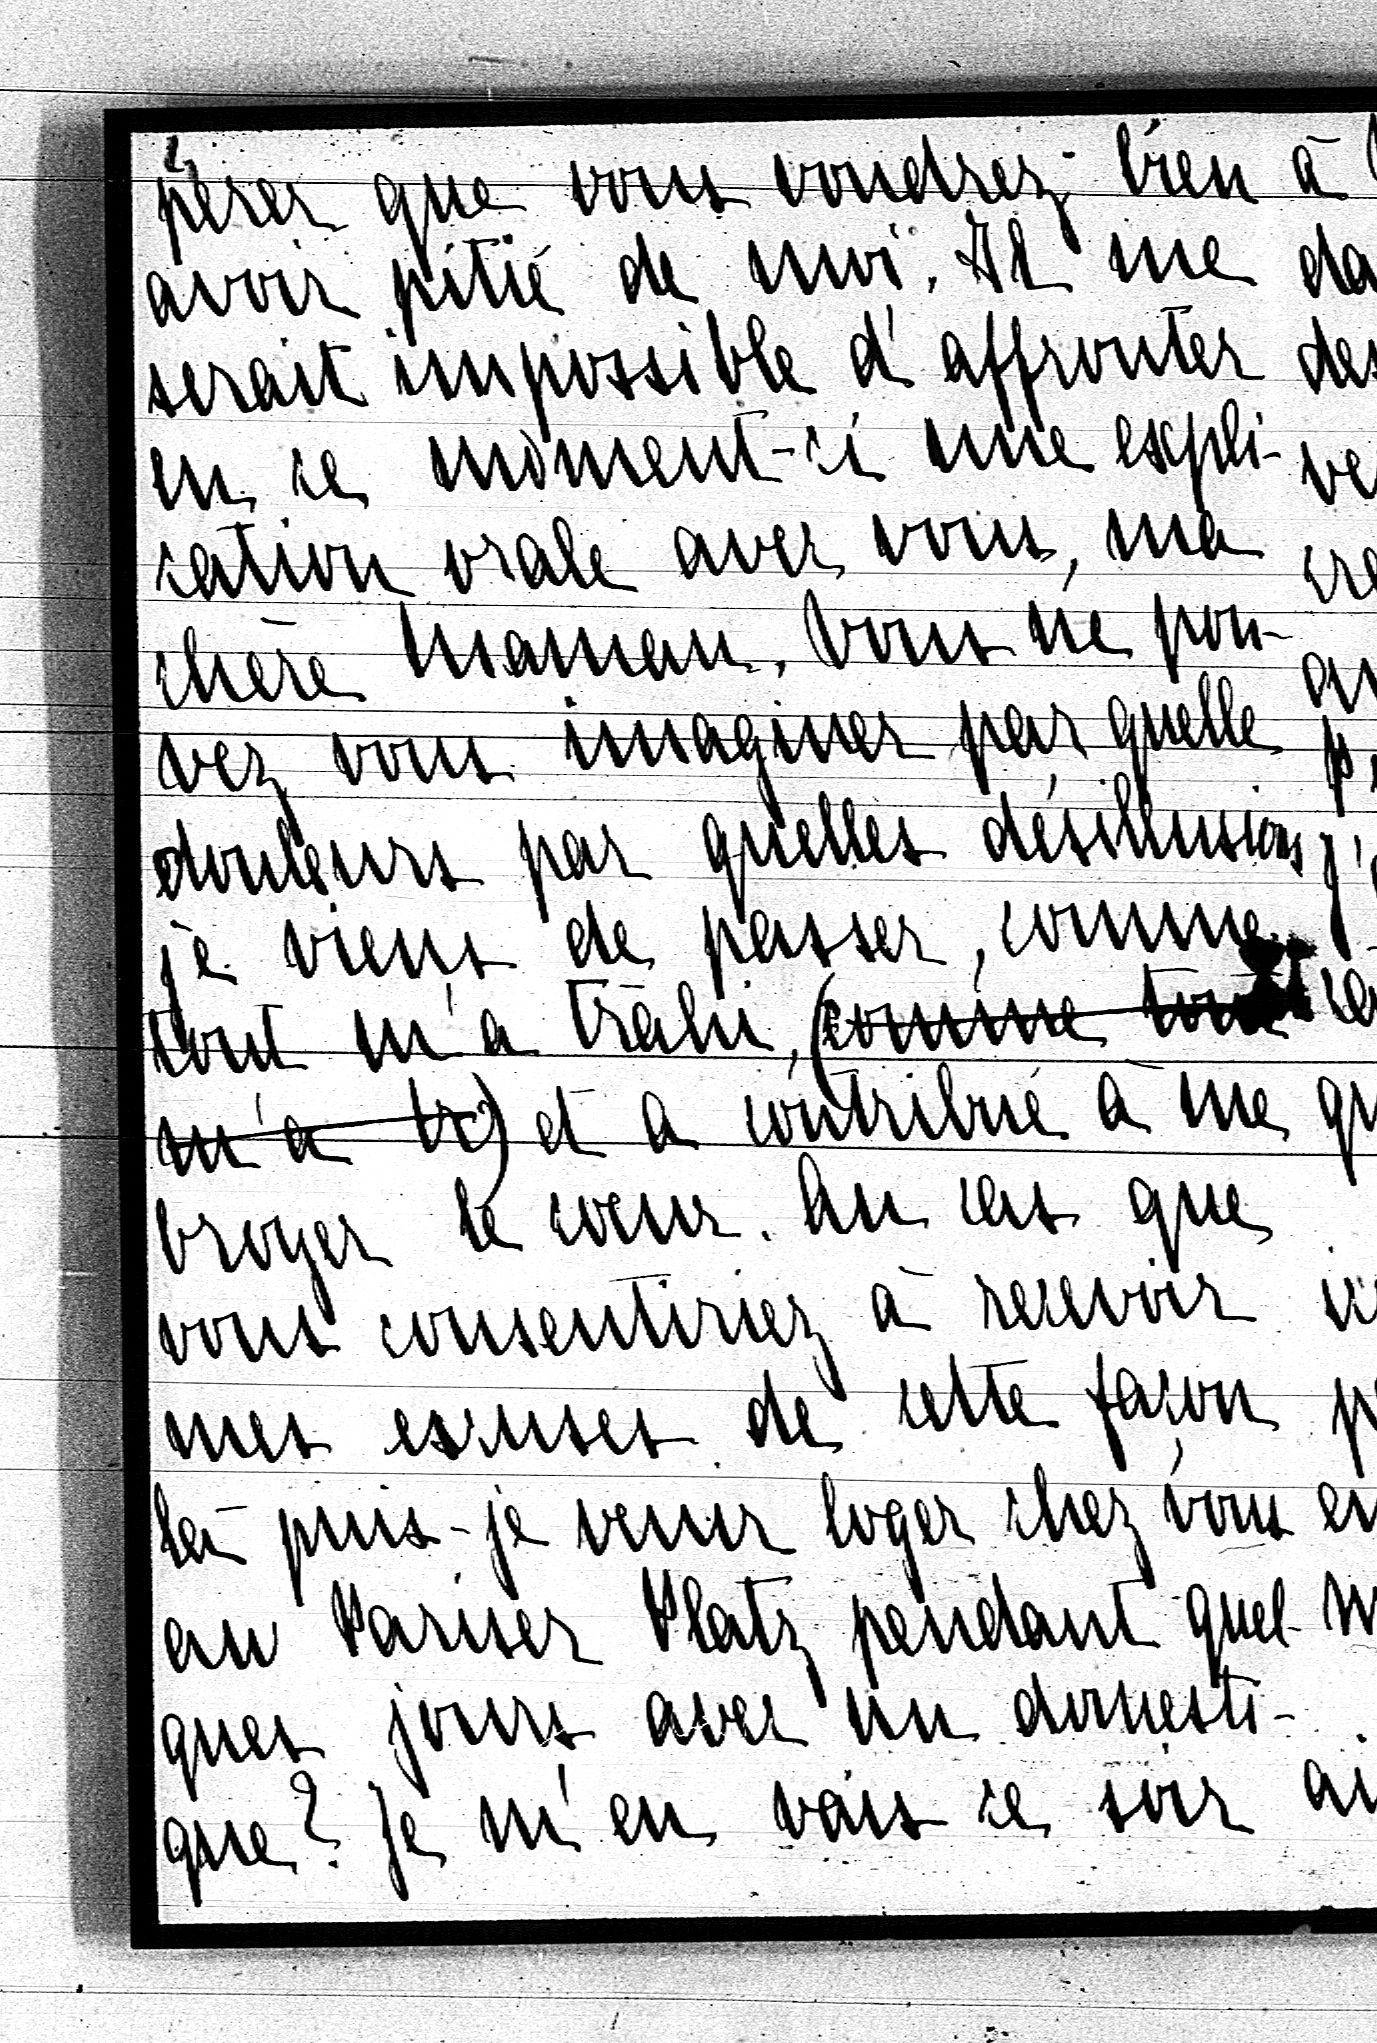 pérer que vous voudrez bien à
avoir pitié de moi. Il me da
serait impossible d'affronter des
en ce moment-ci une expli- ve
cation orale avec vous, ma cre
chère Maman. Vous ne pou-
vez vous imaginer par quelle
douleurs par quelles désillusions j'
je viens de passer, comme
tout m'a trahi, (comme tout
m'a tr) et a contribué à me qu
broyer le coeur. Au cas que
vous consentiriez à recevoir
mes excuses de cette façon
là puis-je venir loger chez vous en
au Pariser Platz pendant quel-
ques jours avec un domesti-
que? Je m'en vais ce soir